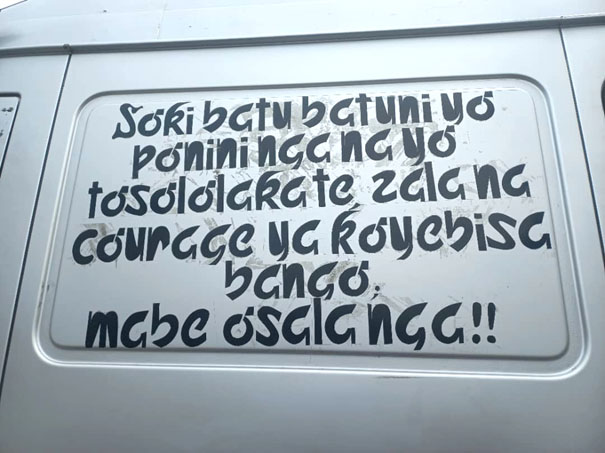 Soki batu batuni yo
ponini nga na yo
tosololaka te, zala na
courage ya koyebisa
bango,
mabe osala nga!!